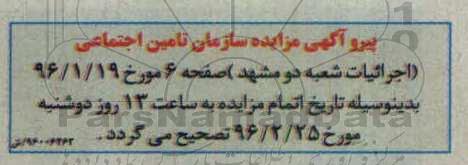 پیرو آگهی مزایده سازمان تامین اجتماعی
(اجرائیات شعبه دو مشهد )صفحه ۶ مورخ ۹۶/۱/۱۹
بدینوسیله تاریخ اتمام مزایده به ساعت ۱۳ روز دوشنبه
مورخ ۹۶/۲/۲۵ تصحیح می گردد.
ParsNamadData